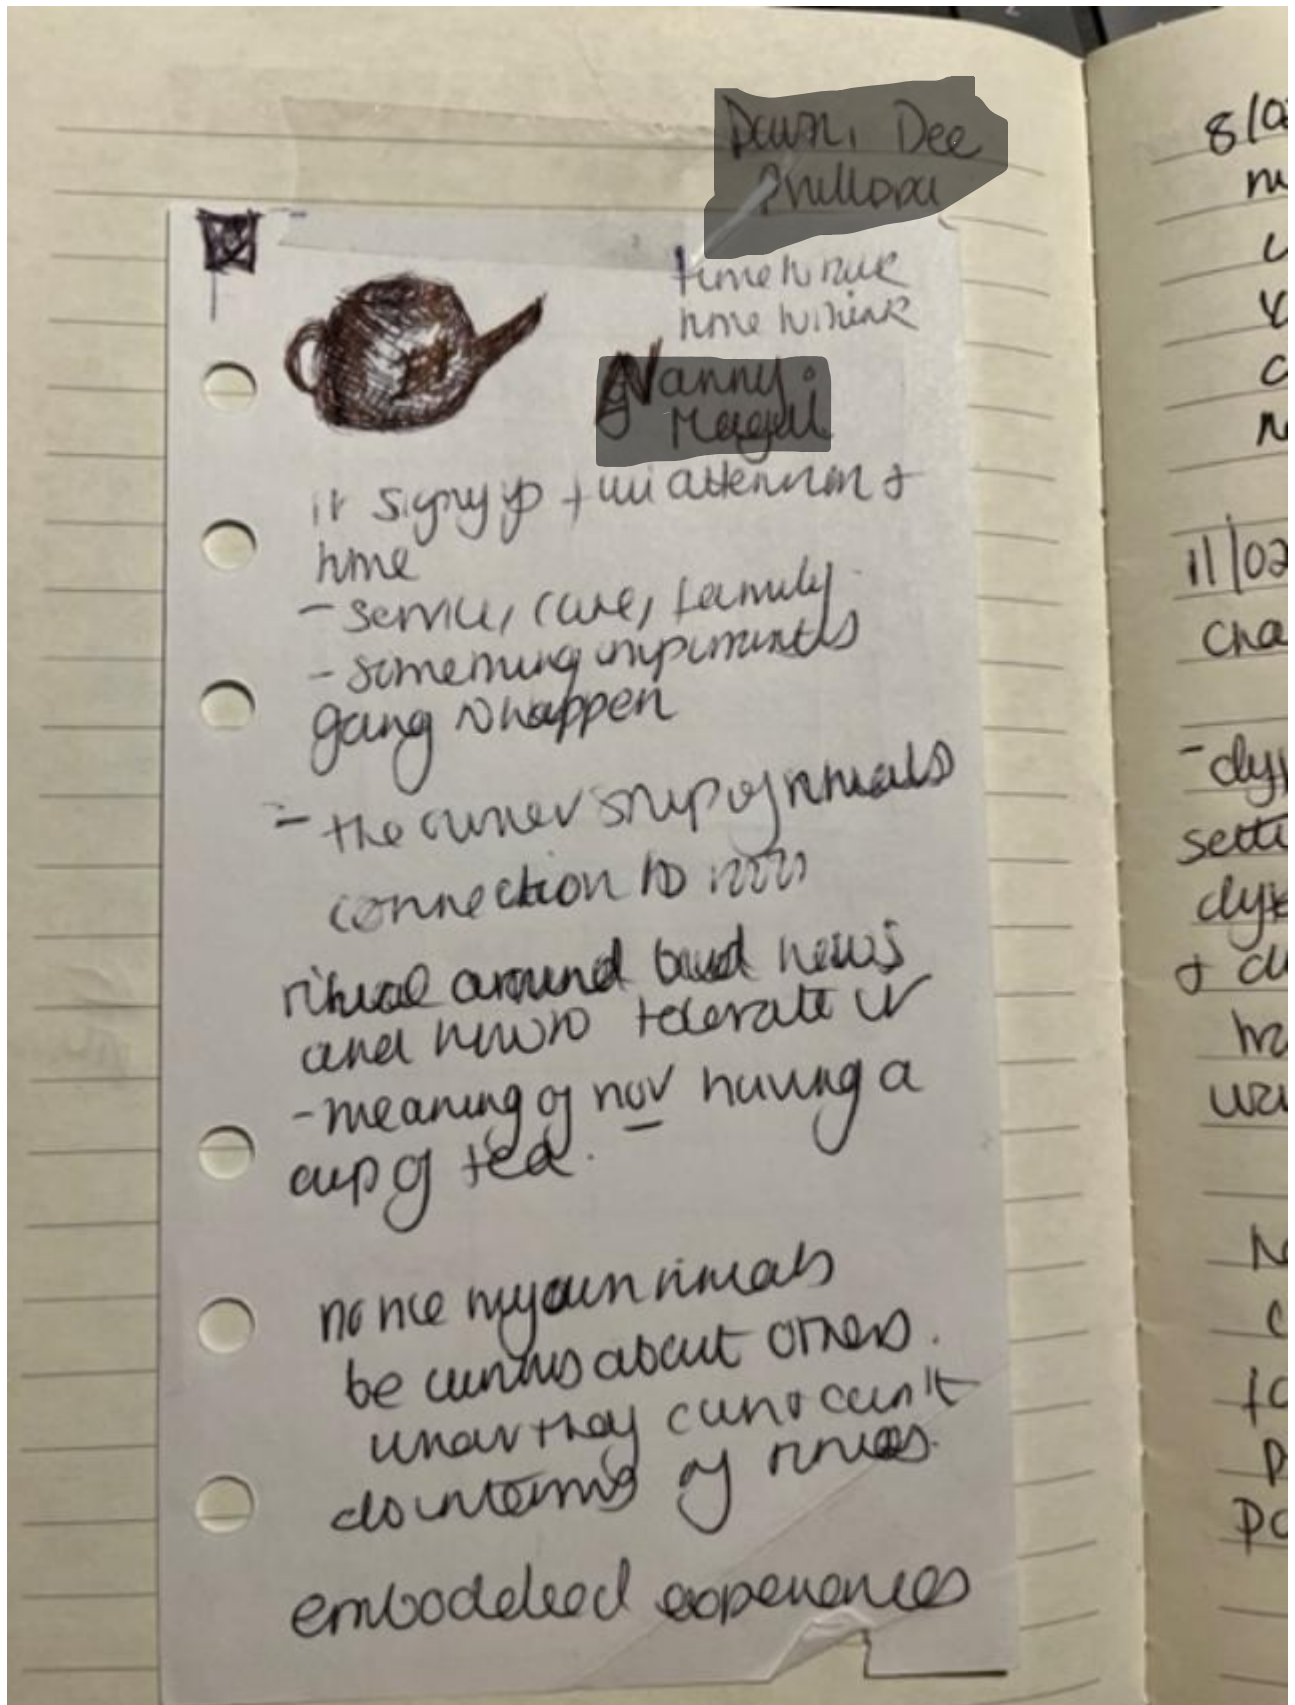 Dawn, Dee
time to talk
time to think
Nanny
it signifys + uu attention +
time
- service, care, family
- something important is
going to happen
- the ownership of rituals
connection to
ritual around bad news
and how to tolerate it
- meaning of not having a
cup of tea.
notice my own rituals
be curious about others.
what they can + can't
do in terms of
embodeied experiences
8/02
11/02
cha
- dys
sett
dys